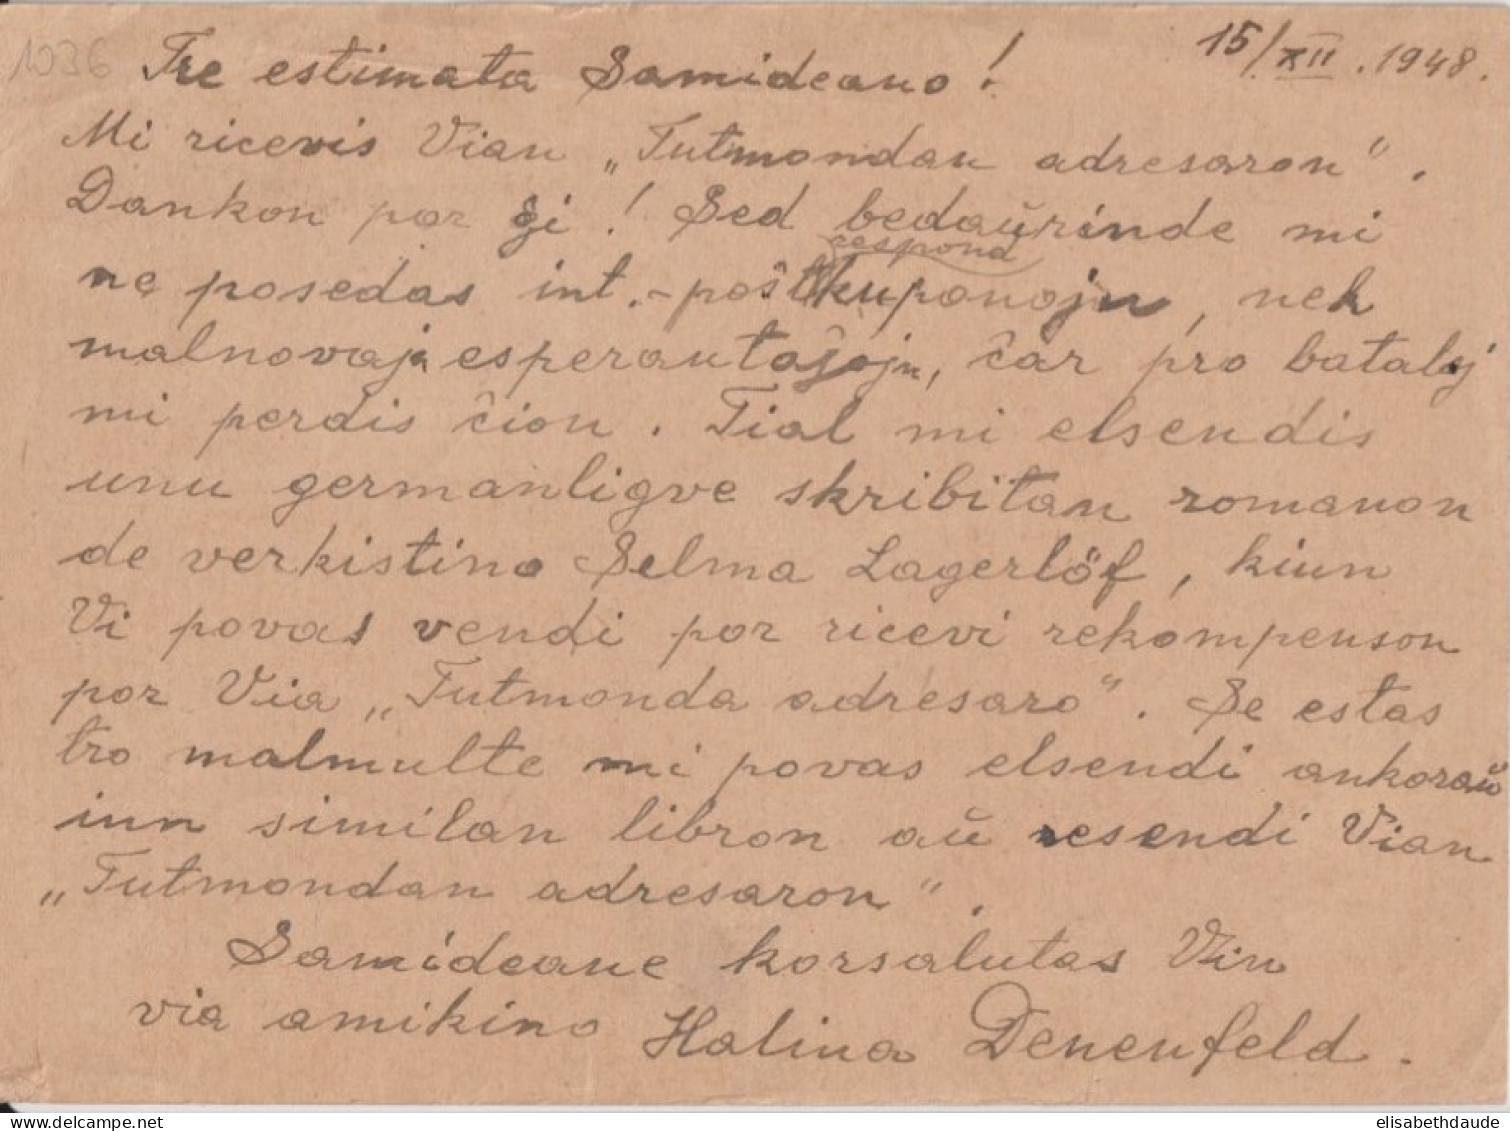 1036
15/XII.1948.
Tre estimata Samideano!
Mi ricevis Vian „Tutmondan adresaron".
Dankon por ĝi! Sed bedaŭrinde mi
respond
ne posedas int.-poŝtkuponojn, nek
malnovajn esperantaĵojn, ĉar pro bataloj
mi perdis ĉion. Tial mi elsendis
unu germanligve skribitan romanon
de verkistino Selma Lagerlöf, kiun
Vi povas vendi por ricevi rekompenson
por Via „Tutmonda adresaro". Se estas
tro malmulte mi povas elsendi ankoraŭ
iun similan libron aŭ resendi Vian
„Tutmondan adresaron".
Samideane korsalutas Vin
via amikino Halina Denenfeld.
elisabethdaude